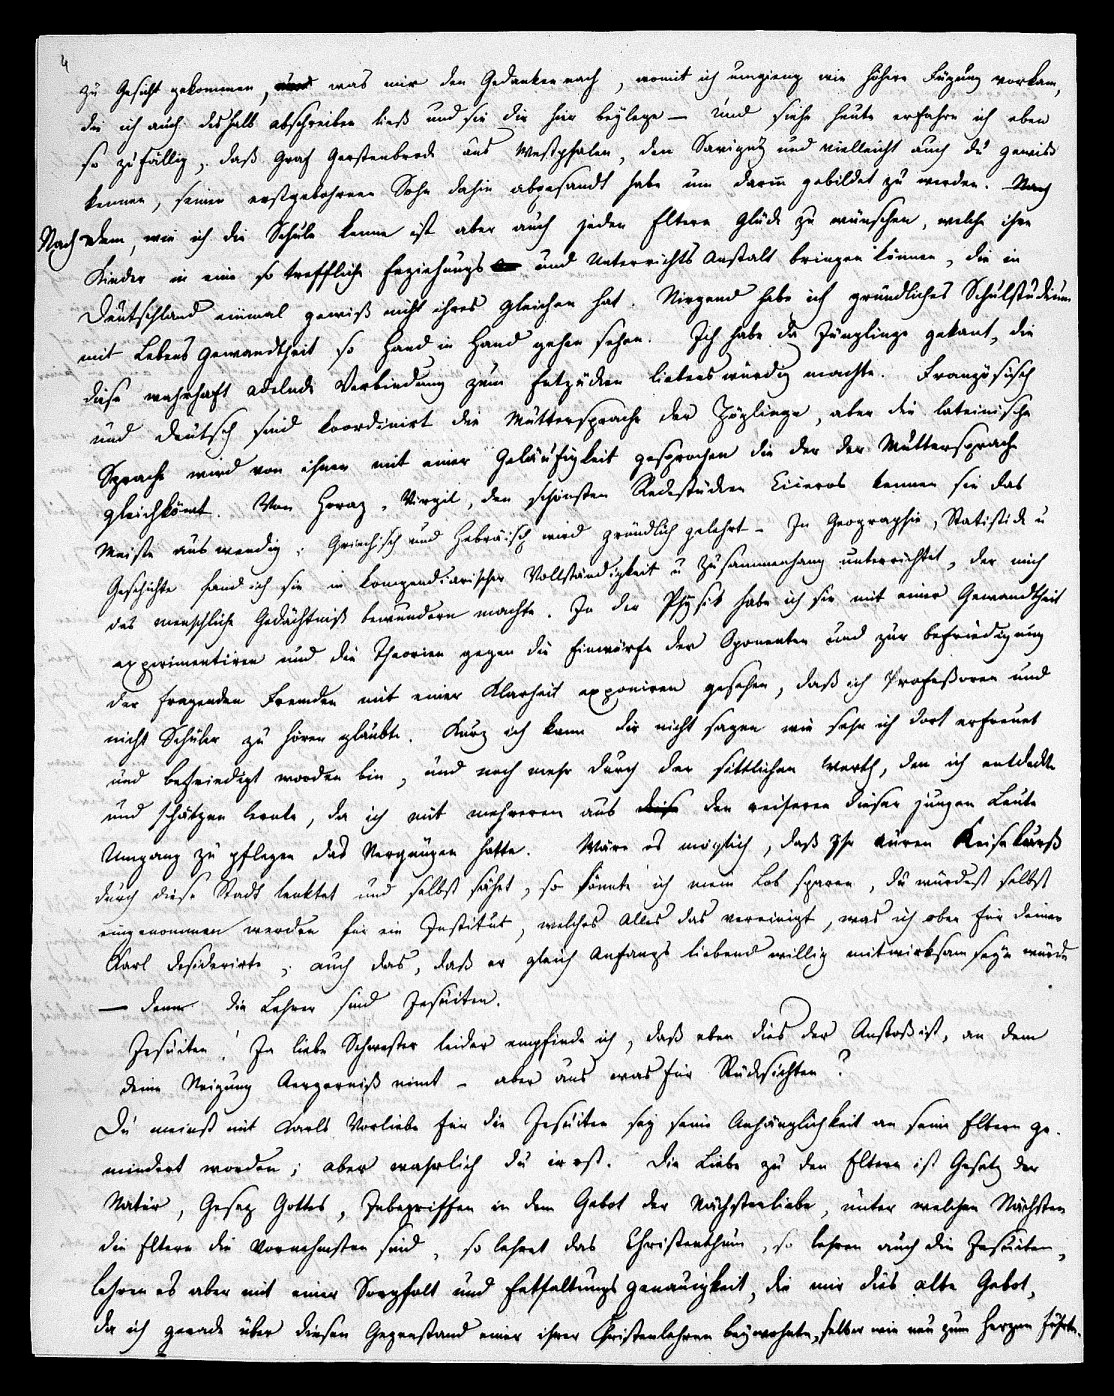 4
zu Gesicht gekommen, und was mir den Gedanken nach, womit ich umgieng wie höhere Fügung vorkam,
die ich auch deshalb abschreiben ließ und sie dir hier beylege — Und siehe heute erfahre ich eben
so zufällig, daß Graf Gerstenbrede aus Westphalen, den Savigny und vielleicht auch du gewiß
kennen, seinen erstgebohrnen Sohn dahin abgesandt habe um darin gebildet zu werden. Nach
Nachdem, wie ich die Schule kenne ist aber auch jeden Eltern Glück zu wünschen, welche ihre
Kinder in eine so treffliche Erziehungs und Unterrichts Anstalt bringen können, die in
Deutschland einmal gewiß nicht ihres gleichen hat. Nirgend habe ich gründliches Schulstudium
mit Lebens Gewandtheit so Hand in Hand gehen sehen. Ich habe da Jünglinge gekant, die
diese wahrhaft adelnde Verbindung zum Entzücken liebenswürdig machte. Französisch
und deutsch sind koordinirt die Muttersprache der Zöglinge, aber die lateinische
Sprache wird von ihnen mit einer Geläufigkeit gesprochen die der der Muttersprache
gleichkömt. Von Horaz, Virgil, den schönsten Redestücken Ciceros kennen sie das
Meiste auswendig. Griechisch und Hebräisch wird gründlich gelehrt – In Geographie, Statistick u
Geschichte fand ich sie in kompendiarischer Vollständigkeit u Zusammenhang unterrichtet, der mich
das menschliche Gedächtniß bewundern machte. In der Physik habe ich sie mit einer Gewandtheit
experimentiren und die Theorien gegen die Einwürfe der Oponenten und zur befriedigung
der fragenden Fremden mit einer Klarheit exponiren gesehen, daß ich Profeßoren und
nicht Schüler zu hören glaubte. Kurz ich kann dir nicht sagen wie sehr ich dort erfreut
und befriedigt worden bin, und noch mehr durch den sittlichen Werth, den ich entdeckte
und schätzen lernte, da ich mit mehreren aus den reiferen dieser jungen Leute
Umgang zu pflegen das Vergnügen hatte. Wäre es möglich, daß Ihr euren Reisekurß
durch diese Stadt lenktet und selbst sähet, so könnte ich mein Lob sparen, du würdest selbst
eingenommen werden für ein Institut, welches Alles das vereinigt, was ich oben für deinen
Karl desiderirte, auch das, daß er gleich Anfangs liebend willig mitwirksam seyn würde
— denn die Lehrer sind Jesuiten.
Jesuiten! Ja liebe Schwester leider empfinde ich, daß eben dies der Anstoß ist, an dem
deine Neigung Aergerniß nimt – aber aus was für Rücksichten?
Du meinst mit Karls Vorliebe für die Jesuiten sey seine Anhänglichkeit an seine Eltern ge-
mindert worden; aber wahrlich du irrst. Die Liebe zu den Eltern ist Gesetz der
Natur, Gesez Gottes, Inbegriffen in dem Gebot der Nächstenliebe, unter welchen Nächsten
die Eltern die Vornehmsten sind, so lehret das Christenthum, so lehren auch die Jesuiten,
lehren es aber mit einer Sorgfalt und Entfaltungs genauigkeit, die mir dies alte Gebot,
da ich gerade über diesen Gegenstand einer ihrer Christenlehren beywohnte, selber wie neu zum Herzen führte.